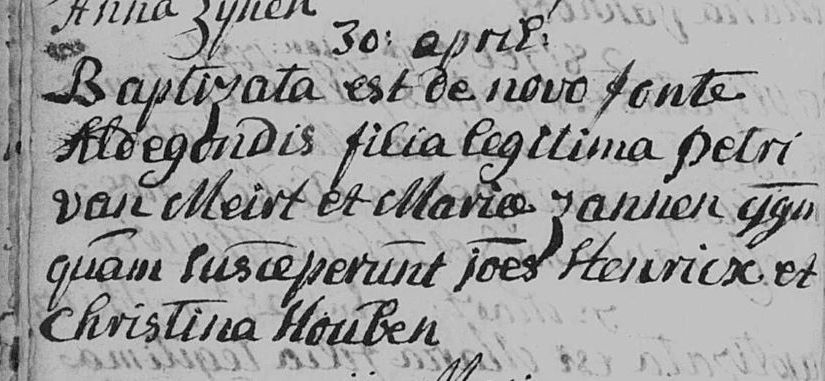 Anna Zijnen
30: april:
Baptizata est de novo fonte
Aldegondis filia legitima petri
van Meirt et Mariæ Jannen
quam susceperunt joës Henricx et
Christina Houben